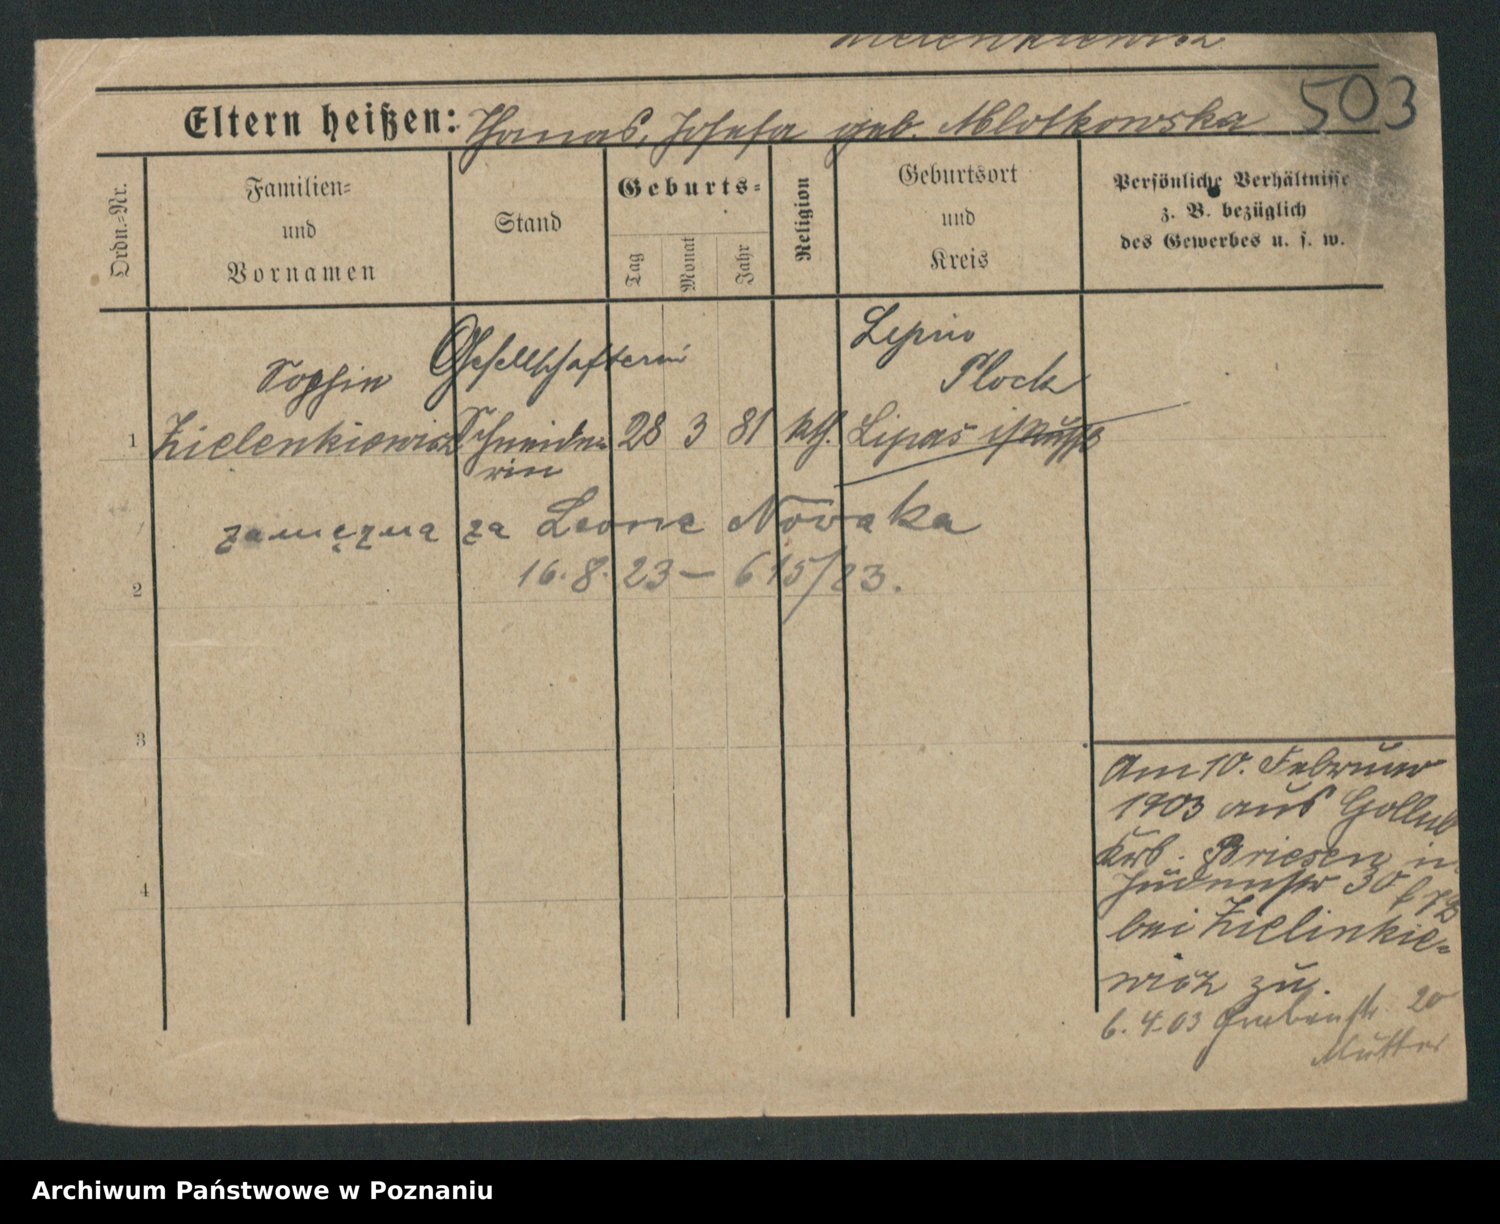 Zielenkiewicz
503
Eltern heißen: Thomas, Josefa geb. Mlotkowska
Ordn.=Nr.
Familien=
und
Vornamen
Stand
Geburts=
Tag
Monat
Jahr
Religion
Geburtsort
und
Kreis
Persönliche Verhältnisse
z. B. bezüglich
des Gewerbes u. s. w.
Gesellschafterin
Lepno
Sophie
Plock
1 Zielenkiewicz Schneide= 28 3 81 kth. Lipas
rin
zamężna za Leone Nowaka
16. 8. 23 — 615/23.
2
3
4
Am 10. Februar
1903 aus Gollub
Krb. Briesen in
Judenstr 30
bei Zielinkie=
wicz zu.
6. 4. 03 Grabenstr. 20
Mutter
Archiwum Państwowe w Poznaniu